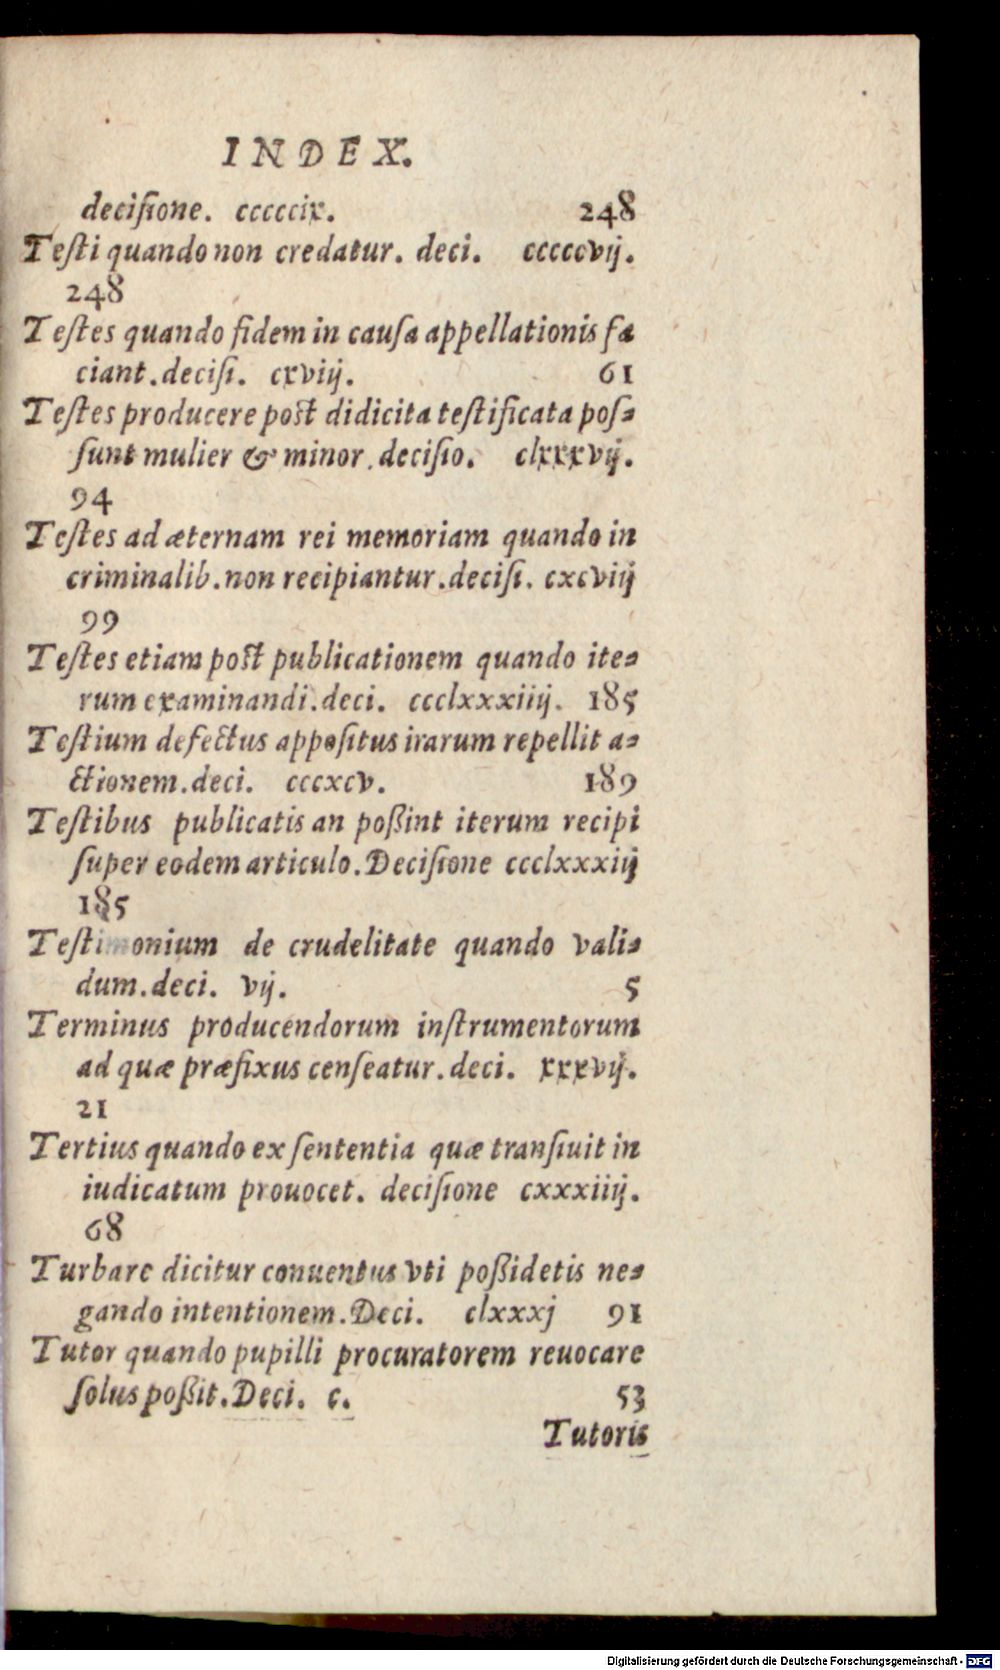 INDEX.
deciſione. cccccix. 248
Teſti quando non credatur. deci. cccccvij.
248
Teſtes quando fidem in cauſa appellationis fa
ciant. deciſi. cxviij. 61
Teſtes producere post didicita teſtificata poſ⸗
ſunt mulier & minor. deciſio. clxxxvij.
94
Teſtes ad æternam rei memoriam quando in
criminalib. non recipiantur. deciſi. cxcviij
99
Teſtes etiam post publicationem quando ite⸗
rum examinandi. deci. ccclxxxiiij. 185
Teſtium defectus appoſitus irarum repellit a⸗
ctionem. deci. cccxcv. 189
Teſtibus publicatis an poßint iterum recipi
ſuper eodem articulo. Deciſione ccclxxxiij
185
Teſtimonium de crudelitate quando vali⸗
dum. deci. vij. 5
Terminus producendorum inſtrumentorum
ad quæ præfixus cenſeatur. deci. xxxvij.
21
Tertius quando ex ſententia quæ tranſiuit in
iudicatum prouocet. deciſione cxxxiiij.
68
Turbare dicitur conuentus vti poßidetis ne⸗
gando intentionem. Deci. clxxxj 91
Tutor quando pupilli procuratorem reuocare
ſolus poßit. Deci. c. 53
Tutoris
Digitalisierung gefördert durch die Deutsche Forschungsgemeinschaft - DFG